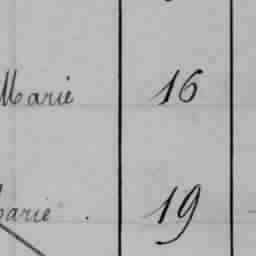 Marie 16
Marie . 19